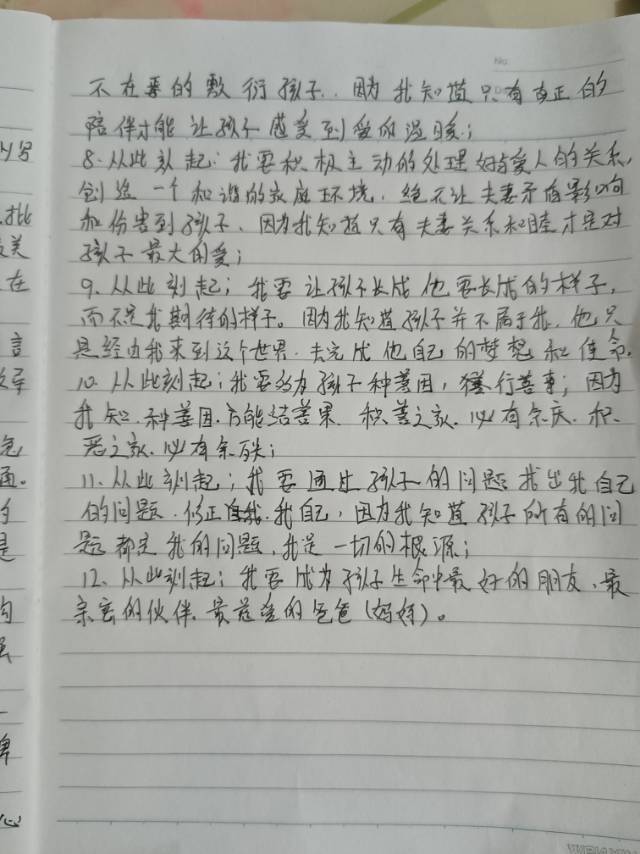 No.
不在乎的敷衍孩子、因为我知道只有真正的
陪伴才能让孩子感受到爱的温暖；
8. 从此刻起：我要积极主动的处理好与爱人的关系，
创造一个和谐的家庭环境，绝不让夫妻矛盾影响
和伤害到孩子、因为我知道只有夫妻关系和睦才是对
孩子最大的爱；
9. 从此刻起；我要让孩子长成他要长成的样子，
而不是我期待的样子。因为我知道孩子并不属于我、他只
是经由我来到这个世界、去完成他自己的梦想和使命.
10. 从此刻起；我要多为孩子种善因，行善事；因为
我知、种善因、方能结善果、积善之家、必有余庆、积
恶之家、必有余殃；
11. 从此刻起；我要通过孩子的问题找出我自己
的问题、修正我自己，因为我知道孩子所有的问
题都是我的问题、我是一切的根源；
12. 从此刻起；我要成为孩子生命中最好的朋友、最
亲密的伙伴、最慈爱的爸爸（妈妈）。